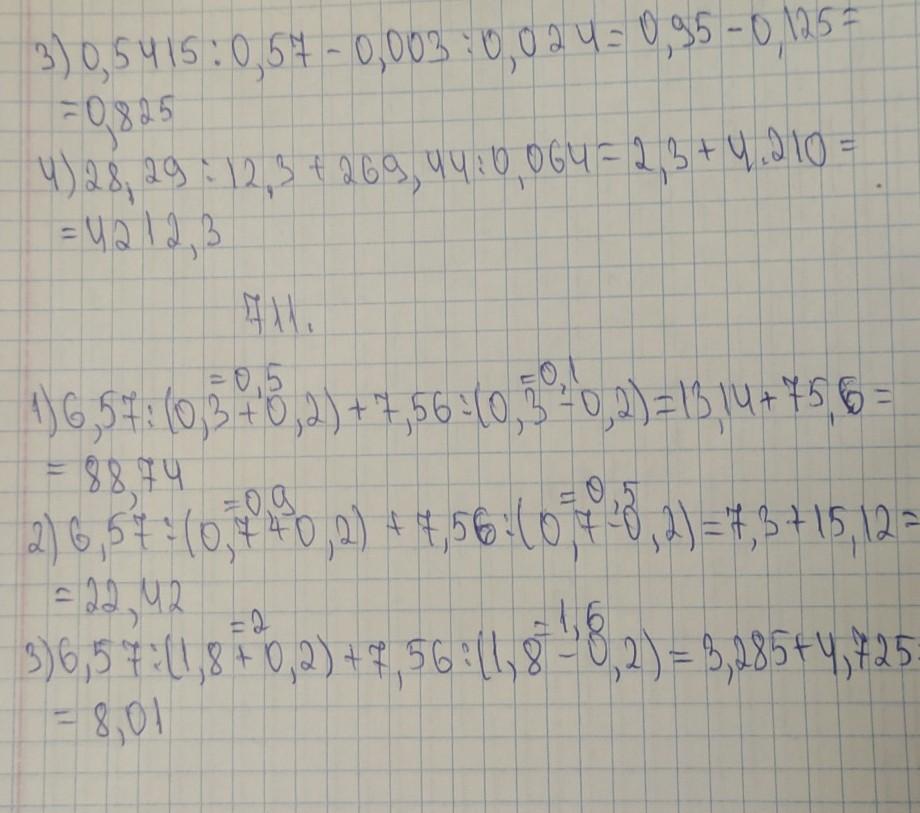 3) 0,5415 : 0,57 - 0,003 : 0,024 = 0,95 - 0,125 =
= 0,825
4) 28,29 : 12,3 + 269,44 : 0,064 = 2,3 + 4.210 =
= 4212,3
711.
= 0,5 = 0,1
1) 6,57 : (0,3 + 0,2) + 7,56 : (0,3 - 0,2) = 13,14 + 75,6 =
= 88,74
= 0,9 = 0,5
2) 6,57 : (0,7 + 0,2) + 7,56 : (0,7 - 0,2) = 7,3 + 15,12 =
= 22,42
= 2 = 1,6
3) 6,57 : (1,8 + 0,2) + 7,56 : (1,8 - 0,2) = 3,285 + 4,725
= 8,01